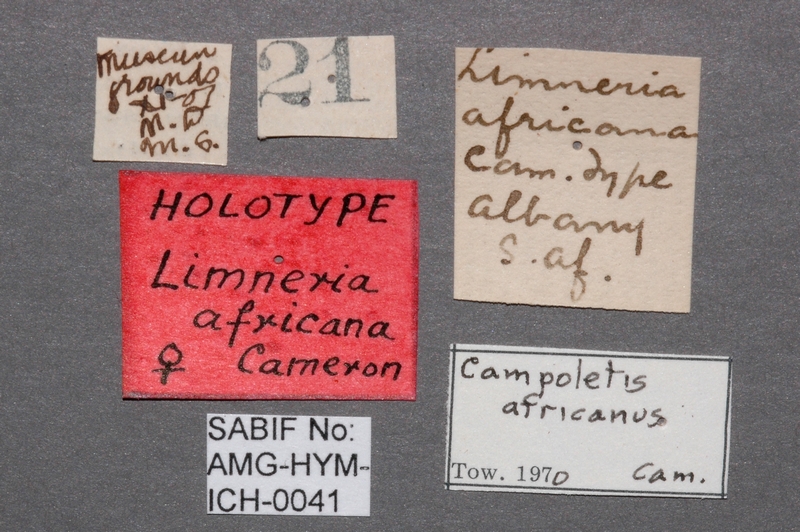 museum
grounds
M. D
M. G.
21
Limneria
africana
Cam. Type
Albany
S. Af.
HOLOTYPE
Limneria
africana
♀ Cameron
Campoletis
africanus
Tow. 1970 Cam.
SABIF No:
AMG-HYM-
ICH-0041